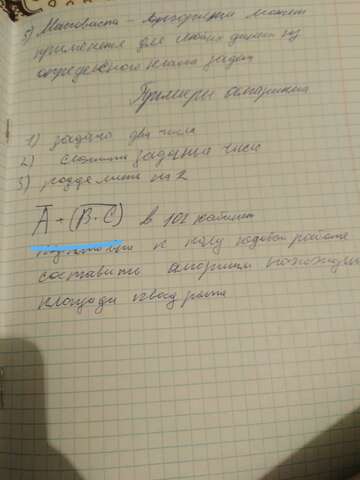 5) Массовость – алгоритм может
применятся для любых данных из
определённого класса задач
Примеры алгоритмов
1) задано два числа
2) сложить заданные числа
3) разделить на 2
A + (B · C) в 102 кабинет
к полугодовой работе
составить алгоритм нахождения
площади квадрата